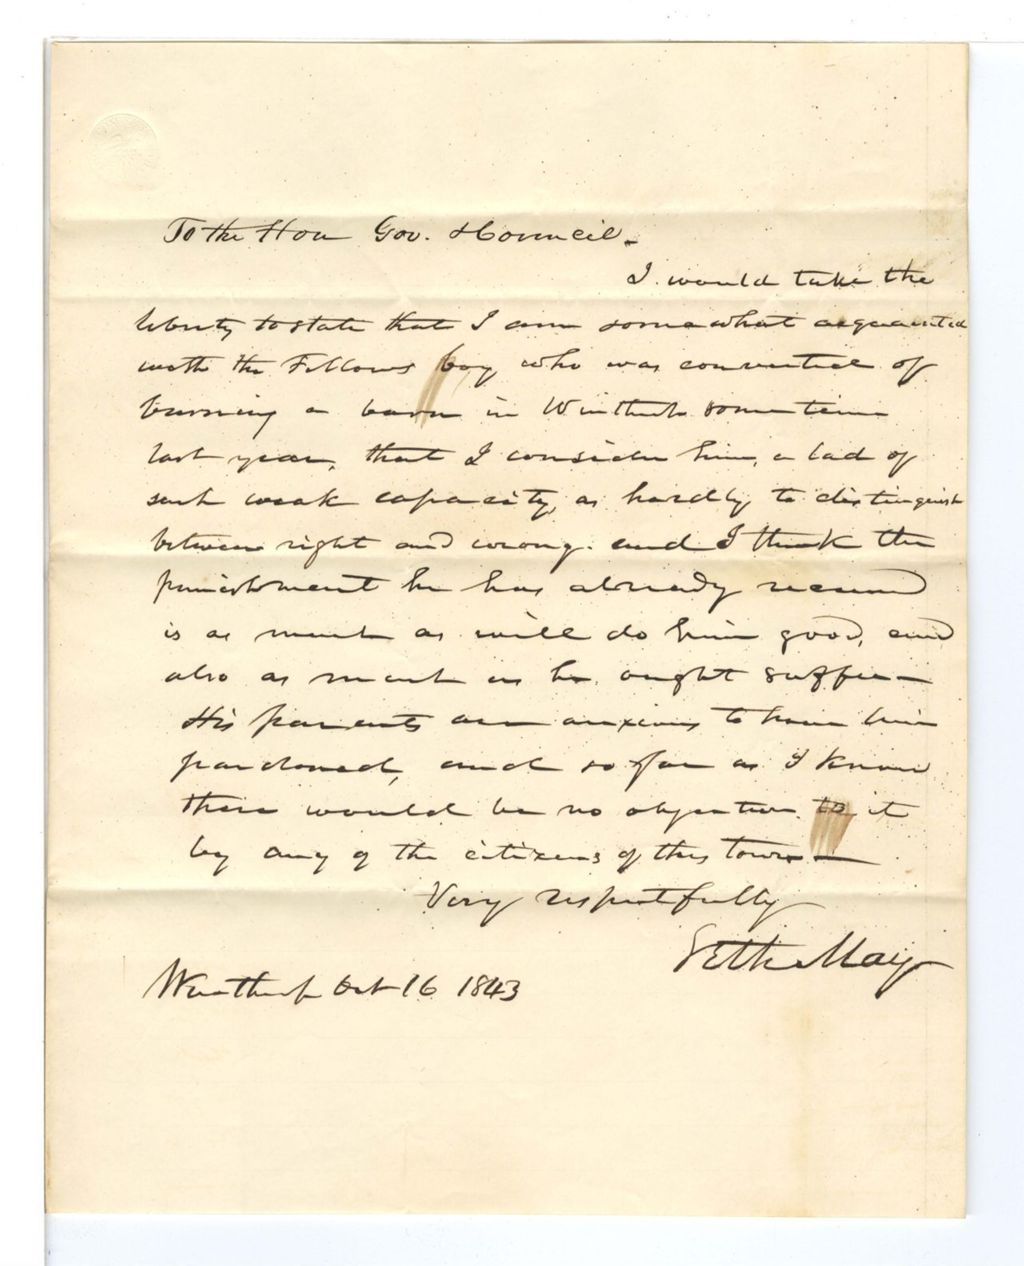 To the Hon Gov. & Council.
I would take the
liberty to state that I am somewhat acquainted
with the Fellows boy who was convicted of
burning a barn in Winthrop some time
last year, that I consider him, a lad of
such weak capacity, as hardly to distinguish
between right and wrong. and I think the
punishment he has already received
is as much as will do him good, and
also as much as he ought suffer—
His parents are anxious to have him
pardoned, and so far as I know
there would be no objection to it
by any of the citizens of this town—
Very respectfully
Seth May
Winthrop Oct 16 1843